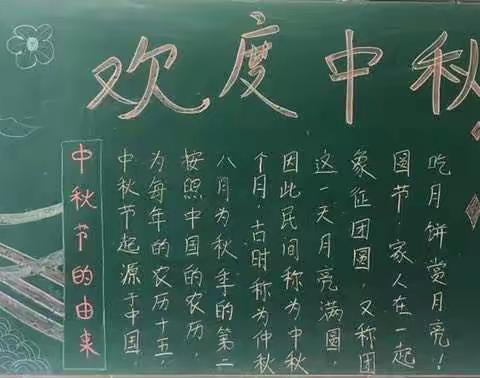 欢度中秋
中秋节的由来
中秋节起源于中国，
为每年的农历十五，
按照中国的农历，
八月为秋季的第二
个月，古时称为仲秋
因此民间称为中秋
这一天月亮满圆，
象征团圆，又称团
圆节，家人在一起
吃月饼赏月亮！